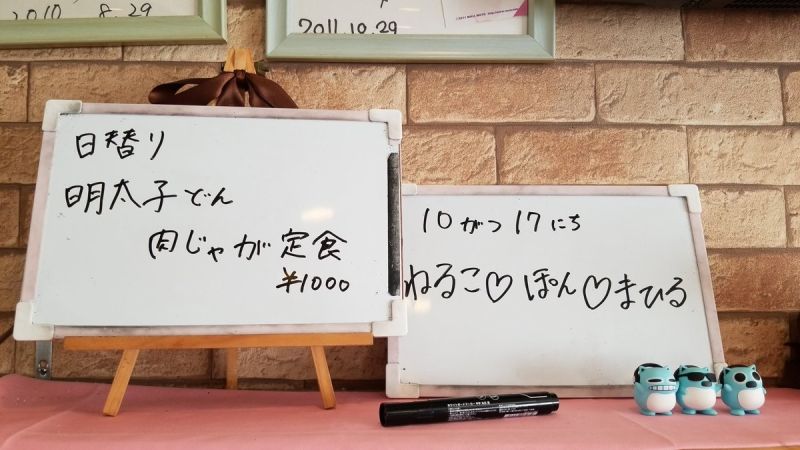 2010. 8.29
2011.10.29
日替り
明太子どん
肉じゃが定食
¥1000
10がつ17にち
ねるこ♡ぽん♡まひる